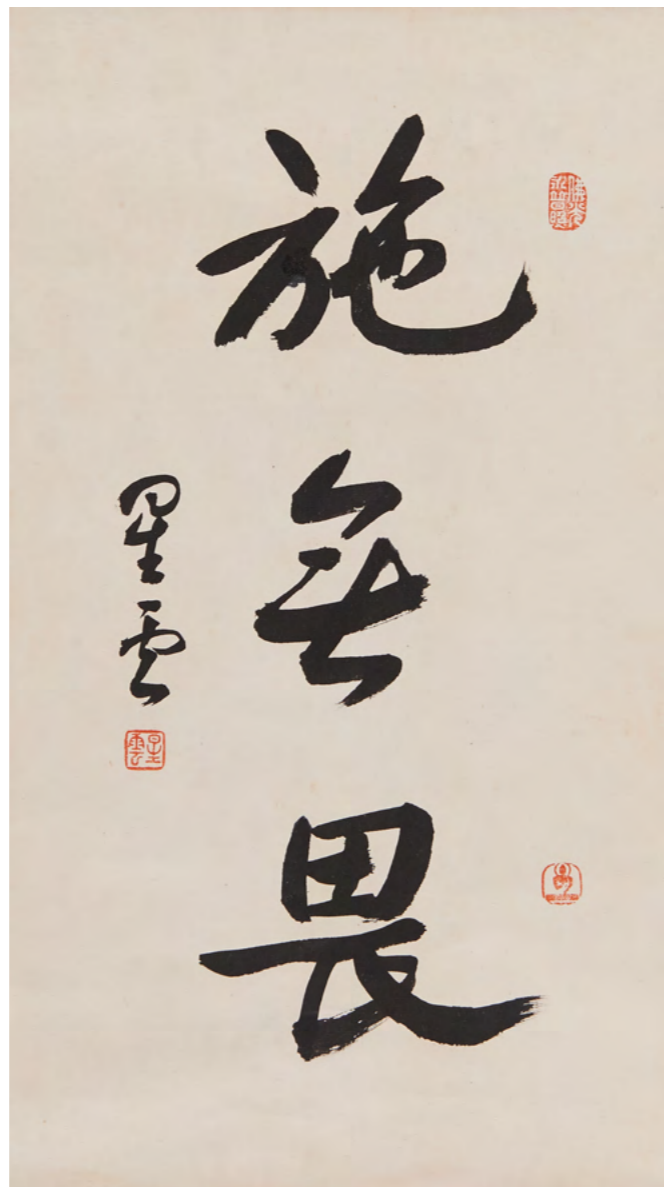 施無畏
星雲
星雲